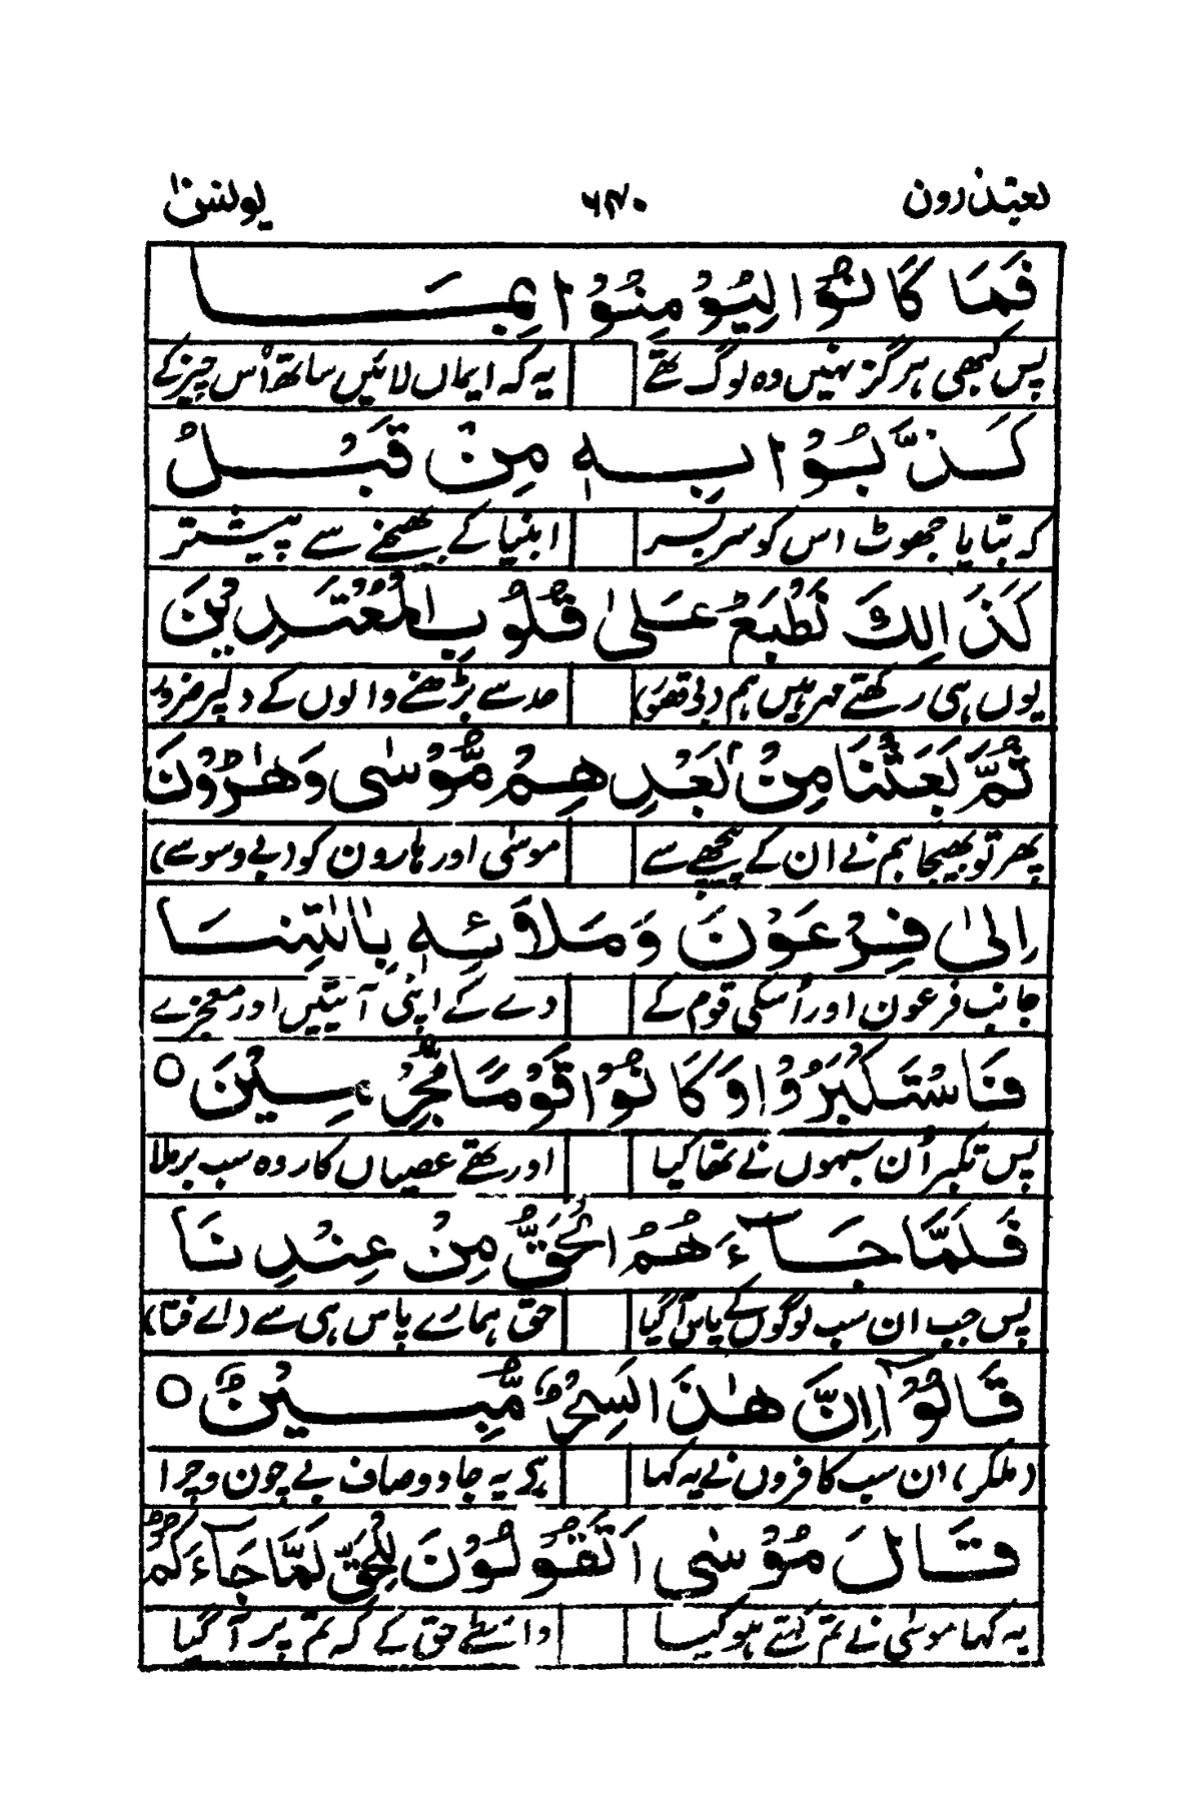 یعتذرون ۶۴۰ یونس ۱۰
فَمَا كَانُوْا لِيُؤْمِنُوْا بِمَا
پس کبھی ہرگز نہیں وہ لوگ تھے یہ کہ ایماں لائیں ساتھ اُس چیز کے
كَذَّبُوْا بِهٖ مِنْ قَبْلُ
کہ بتایا جھوٹ اس کو سربسر ابنیا کے بھیجنے سے پیشتر
كَذٰلِكَ نَطْبَعُ عَلٰى قُلُوْبِ الْمُعْتَدِيْنَ
یوں ہی رکھتے مہر ہیں ہم حد سے بڑھنے والوں کے دلپر ضرور
ثُمَّ بَعَثْنَا مِنْۢ بَعْدِهِمْ مُّوْسٰى وَهٰرُوْنَ
پھر تو بھیجا ہم نے ان کے پیچھے سے موسٰی اور ہارون کو (بے وسوسے)
اِلٰى فِرْعَوْنَ وَمَلَا۟ئِهٖ بِاٰيٰتِنَا
جانب فرعون اور اُسکی قوم کے دے کے اپنی آیتیں اور معجزے
فَاسْتَكْبَرُوْا وَكَانُوْا قَوْمًا مُّجْرِمِيْنَ ○
پس تکبر اُن سبھوں نے تھا کیا اور تھے عصیاں کار وہ سب برملا
فَلَمَّا جَآءَهُمُ الْحَقُّ مِنْ عِنْدِنَا
پس جب ان سب لوگوں کے پاس آگیا حق ہمارے پاس ہی سے (اے فتا)
قَالُوْٓا اِنَّ هٰذَا لَسِحْرٌ مُّبِيْنٌ ○
(ملکر) ان سب کافروں نے یہ کہا ہے یہ جادو صاف بے چون وچرا
قَالَ مُوْسٰٓى اَتَقُوْلُوْنَ لِلْحَقِّ لَمَّا جَآءَكُمْ
یہ کہا موسٰی نے تم کہتے ہو کیا واسطے حق کے کہ تم پر آگیا